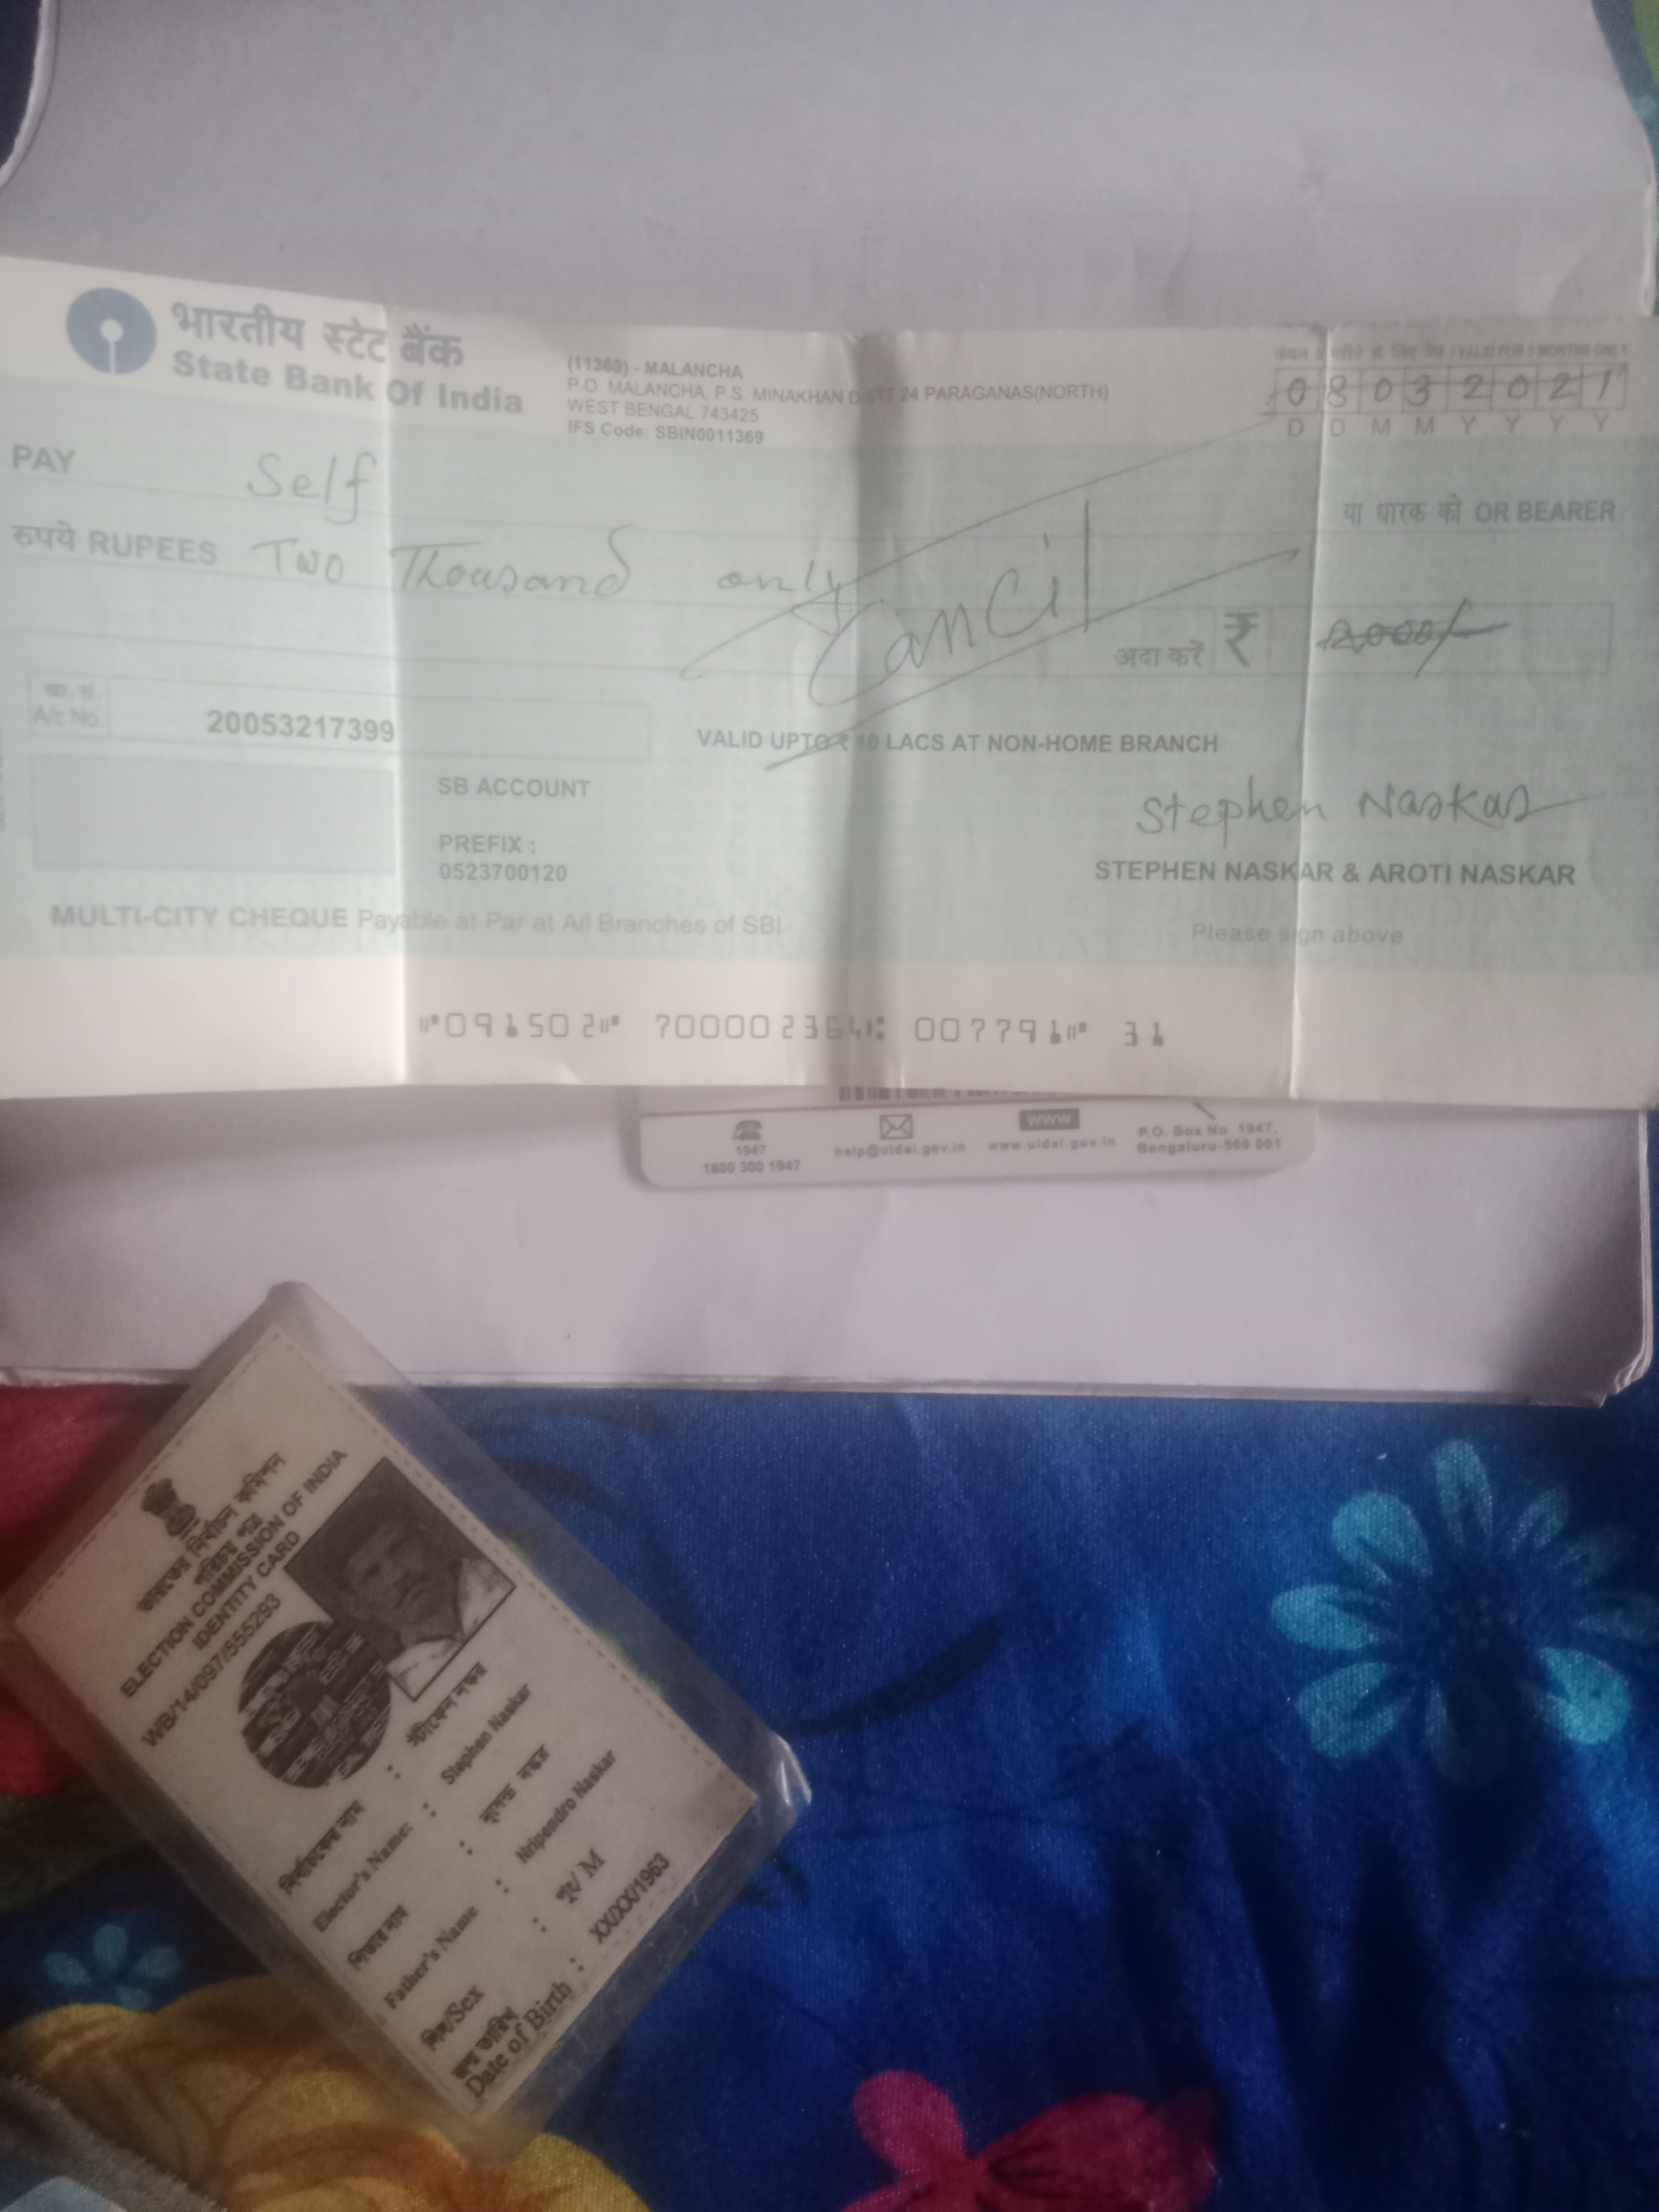 भारतीय स्टेट बैंक
State Bank Of India
(11369) - MALANCHA
P.O. MALANCHA, P.S. MINAKHAN DISTT 24 PARAGANAS(NORTH)
WEST BENGAL 743425
IFS Code: SBIN0011369
केवल 3 महीने के लिए वैध / VALID FOR 3 MONTHS ONLY
0 8 0 3 2 0 2 1
D D M M Y Y Y Y
PAY Self
या धारक को OR BEARER
रुपये RUPEES Two Thousand only
Cancil
अदा करें ₹ 2,000/-
खा. सं.
A/c No. 20053217399
VALID UPTO ₹ 10 LACS AT NON-HOME BRANCH
SB ACCOUNT
Stephen Naskar
PREFIX :
0523700120
STEPHEN NASKAR & AROTI NASKAR
MULTI-CITY CHEQUE Payable at Par at All Branches of SBI
Please sign above
⑈091502⑈ 700002364⑆ 007791⑈ 31
1947
1800 300 1947
help@uidai.gov.in
www
www.uidai.gov.in
P.O. Box No. 1947,
Bengaluru-560 001
ভারতের নির্বাচন কমিশন
পরিচয় পত্র
ELECTION COMMISSION OF INDIA
IDENTITY CARD
WB/14/097/555293
নির্বাচকের নাম : স্টিফেন নস্কর
Elector's Name: : Stephen Naskar
পিতার নাম : নস্কর
Father's Name : Nripendro Naskar
লিঙ্গ/Sex : পুং/ M
জন্ম তারিখ
Date of Birth : XX/XX/1963